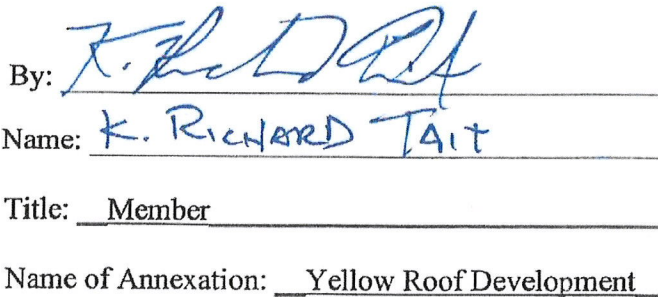 By: K. Richard Tait
Name: K. RICHARD TAIT
Title: Member
Name of Annexation: Yellow Roof Development